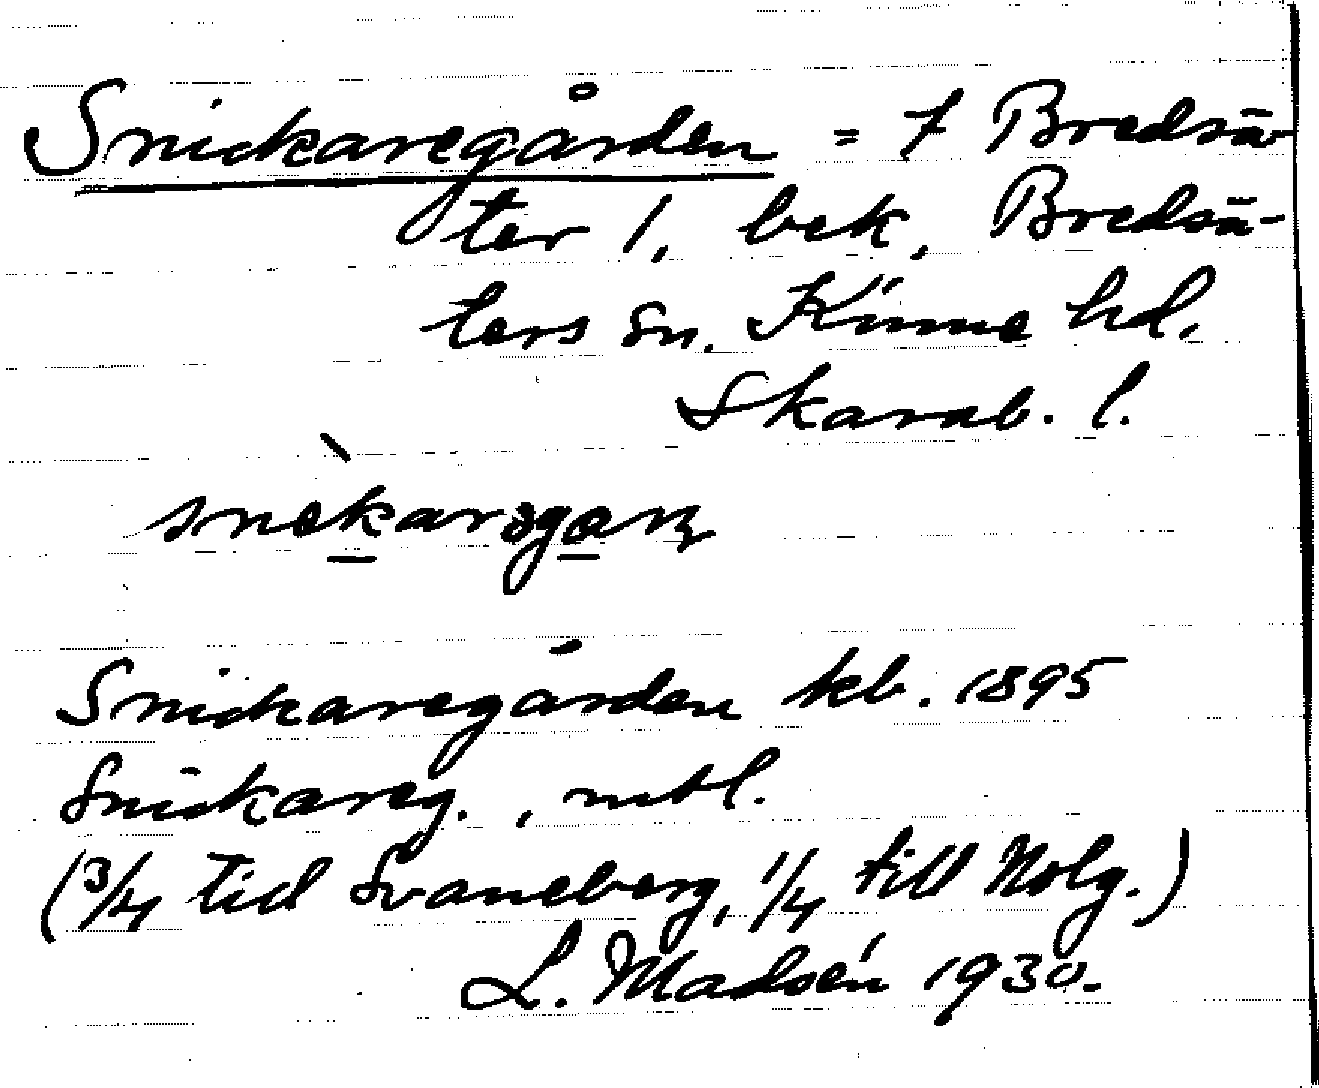 Snickaregården = 7 Bredsä-
ter 1, bek, Bredsä-
ters sn. Kinne hd,
Skarab. l.
snekarəgaɳ
Snickaregården kb. 1895
Snickareg., mtl.
(3/4 till Svaneberg, 1/4 till Nolg.)
L. Madsén 1930.